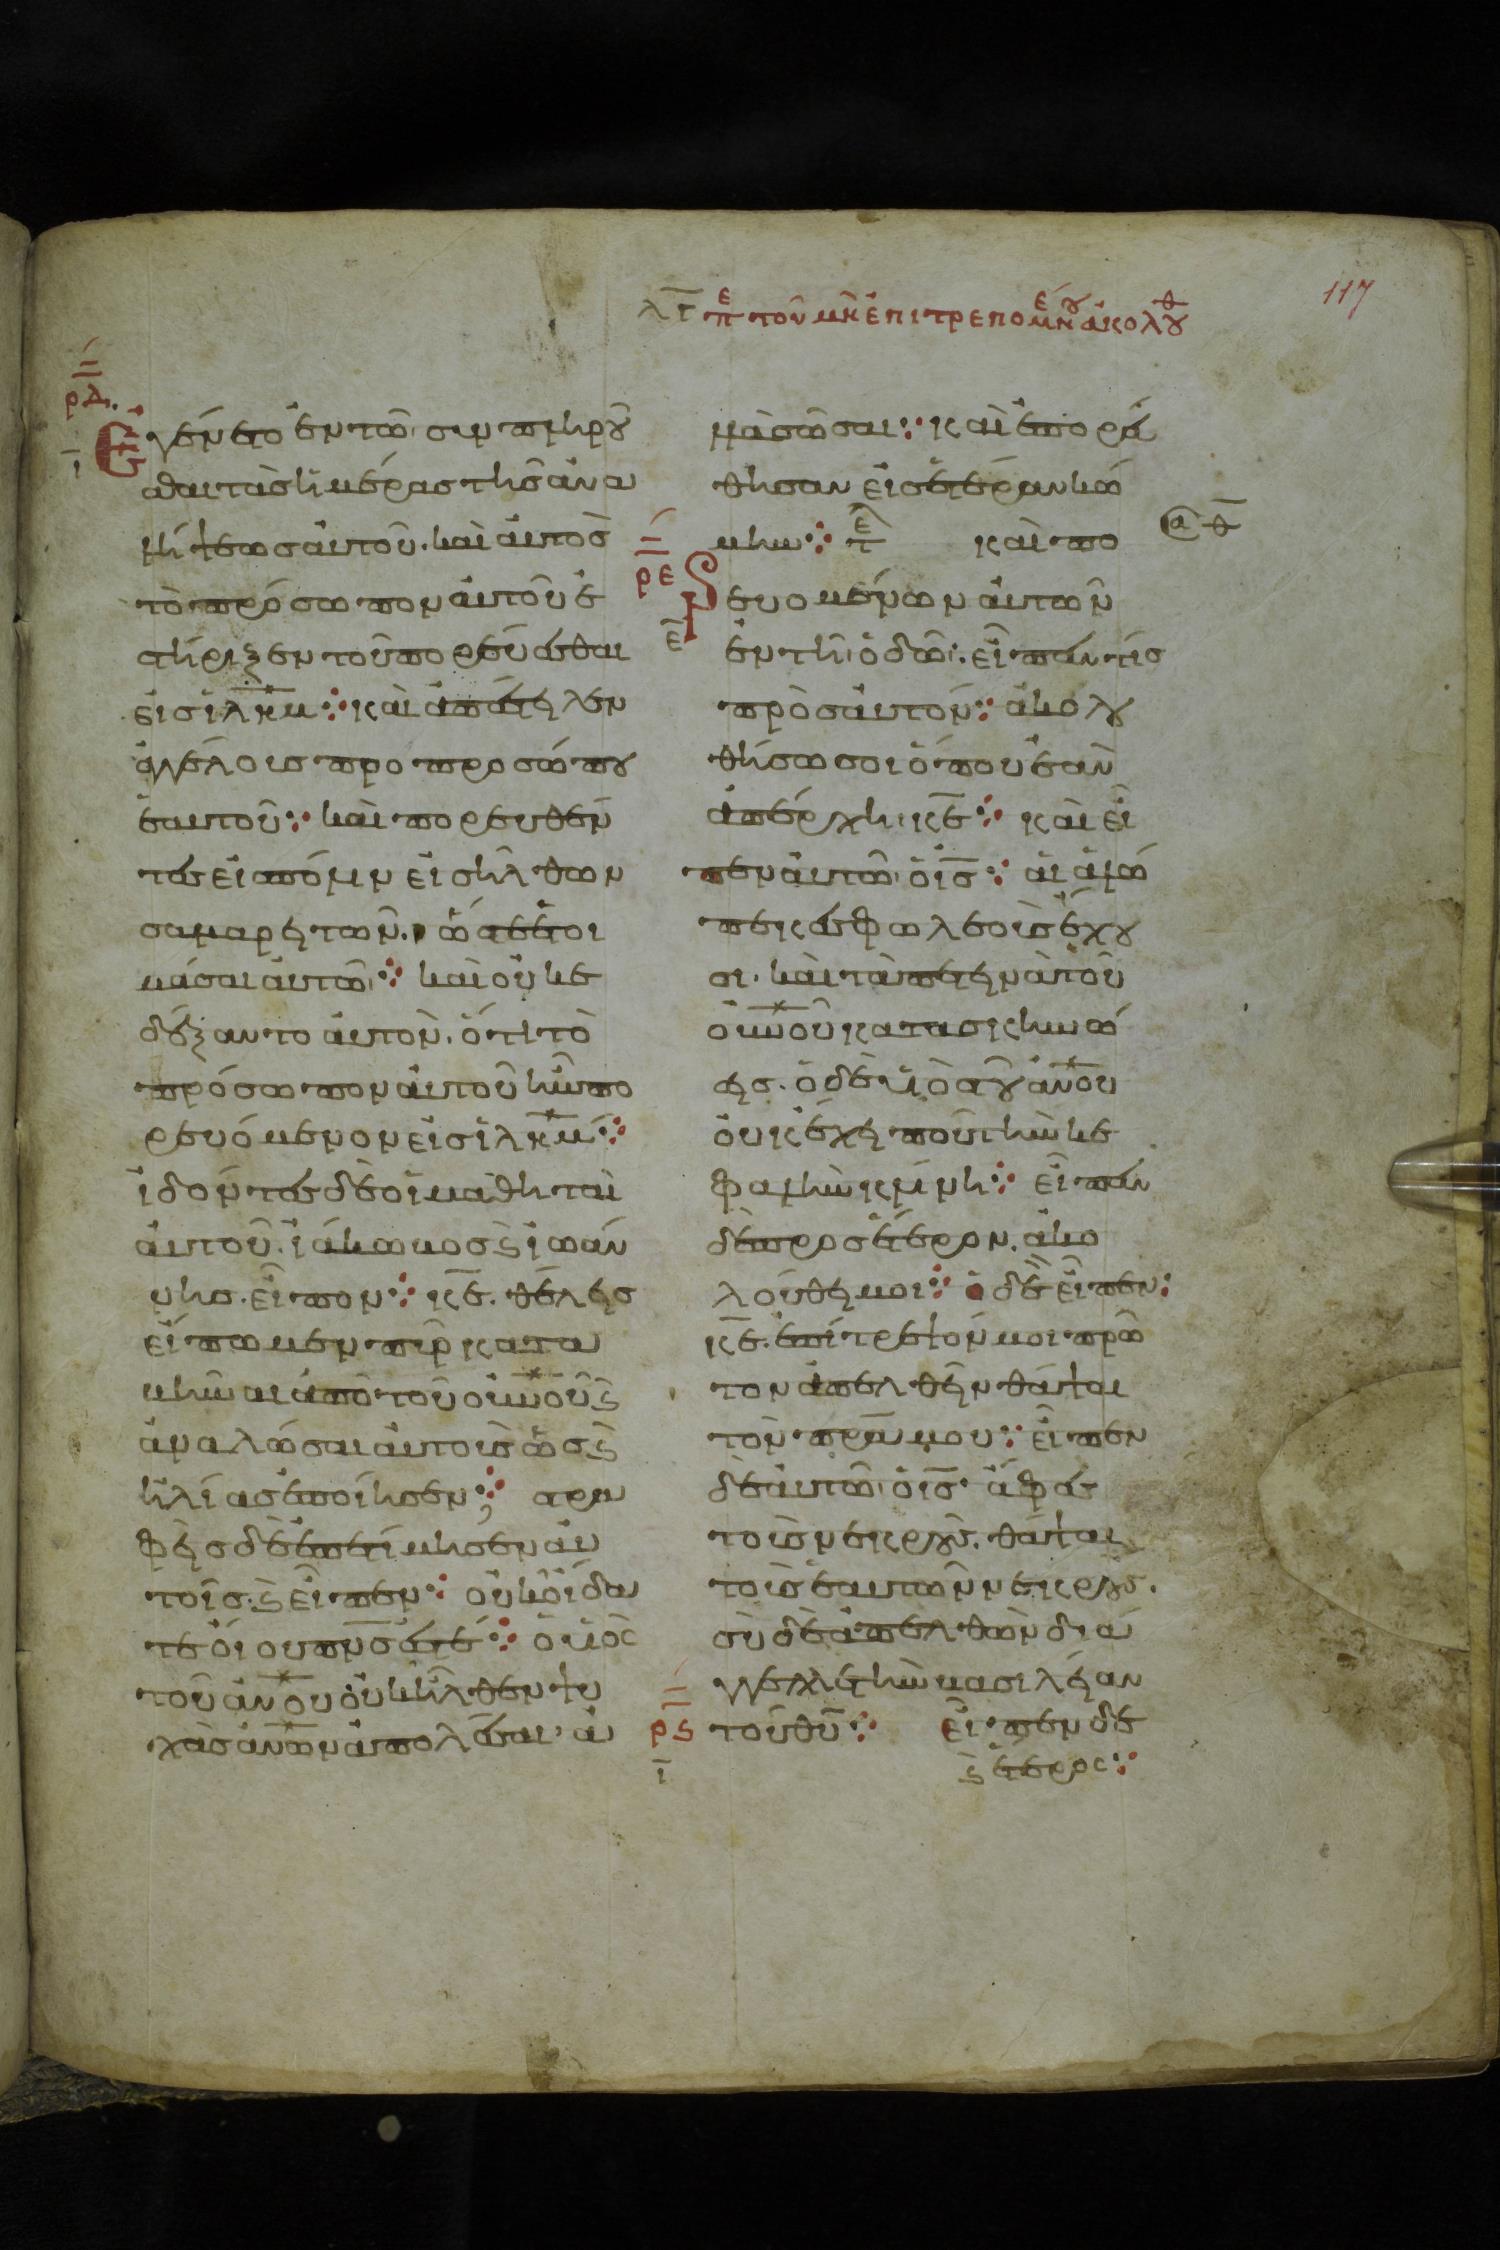 117
λζ πε τοῦ μὴ ἐπιτρεπομένου ἀκολουθ
ρδ
ι
Ἐγένετο ἐν τῶ συμπληροῦ
σθαι τὰς ἡμέρας τῆς ἀνα
λήψεως αὐτοῦ. καὶ αὐτὸς
τὸ πρόσωπον αὐτοῦ ἐ
στήριξεν τοῦ πορεύεσθαι
εἰς ἰλημ· καὶ ἀπέστειλεν
ἀγγέλους προ προσώπου
ἑαυτοῦ· καὶ πορευθέν
τες εἰς πόλιν εἰσῆλθων
σαμαρειτῶν. ὥστε ἑτοι
μάσαι αὐτῶ· καὶ οὐκ ἐ
δέξαντο αὐτὸν. ὅτι τὸ
πρόσωπον αὐτοῦ ἦν πο
ρευόμενον εἰς ἰλημ·
ἰδόντες δὲ οἱ μαθηταὶ
αὐτοῦ. ἰάκωβος ϛ ἰωάν
νης. εἶπον· κε. θέλεις
εἴπωμεν πῦρ κατα
βῆναι ἀπὸ τοῦ οὐνοῦ ϛ
ἀναλῶσαι αὐτοὺς ὡς ϛ
ἡλίας ἐποίησεν; στρα
φεὶς δὲ ἐπετίμησεν αὐ
τοῖς. ϛ εἶπεν· οὐκ οἴδα
τε οἵου πνς ἐστέ· ὁ υἱὸς
τοῦ ἀνου οὐκ ἦλθεν ψυ
χὰς ἀνων ἀπολέσαι· ἀλ
λὰ σῶσαι· καὶ ἐπορεύ
θησαν εἰς ἑτέραν κώ
μην· τε καὶ πο
ρε
ε
ρευομένων αὐτῶν
ἐν τῆ ὁδῶ. εἶπέν τις
πρὸς αὐτόν· ἀκολου
θήσω σοι ὅπου ἐαν
ἀπέρχη κε· καὶ εἶ
πεν αὐτῶ ὁ ις· αἱ ἀλώ
πεκες φωλεοὺς ἔχου
σι. καὶ τὰ πετεινὰ τοῦ
οὐνοῦ κατασκηνώ
σεις. ὁ δὲ υἱὸς τοῦ ἀνου
οὐκ ἔχει ποῦ τὴν κε
φαλὴν κλίνη· εἶπεν
δὲ προς ἕτερον. ἀκο
λούθει μοι· ὁ δὲ εἶπεν·
κε. ἐπίτρεψόν μοι πρῶ
τον ἀπελθεῖν θάψαι
τὸν πρα μου· εἶπεν
δὲ αὐτῶ ὁ ις· ἄφες
τοὺς νεκροὺς. θάψαι
τοὺς ἑαυτῶν νεκρούς.
σὺ δὲ ἀπελθὼν διά
γγελλε τὴν βασιλείαν
ρϛ
ι
τοῦ θυ· εἶπεν δὲ
ϛ ἕτερος·